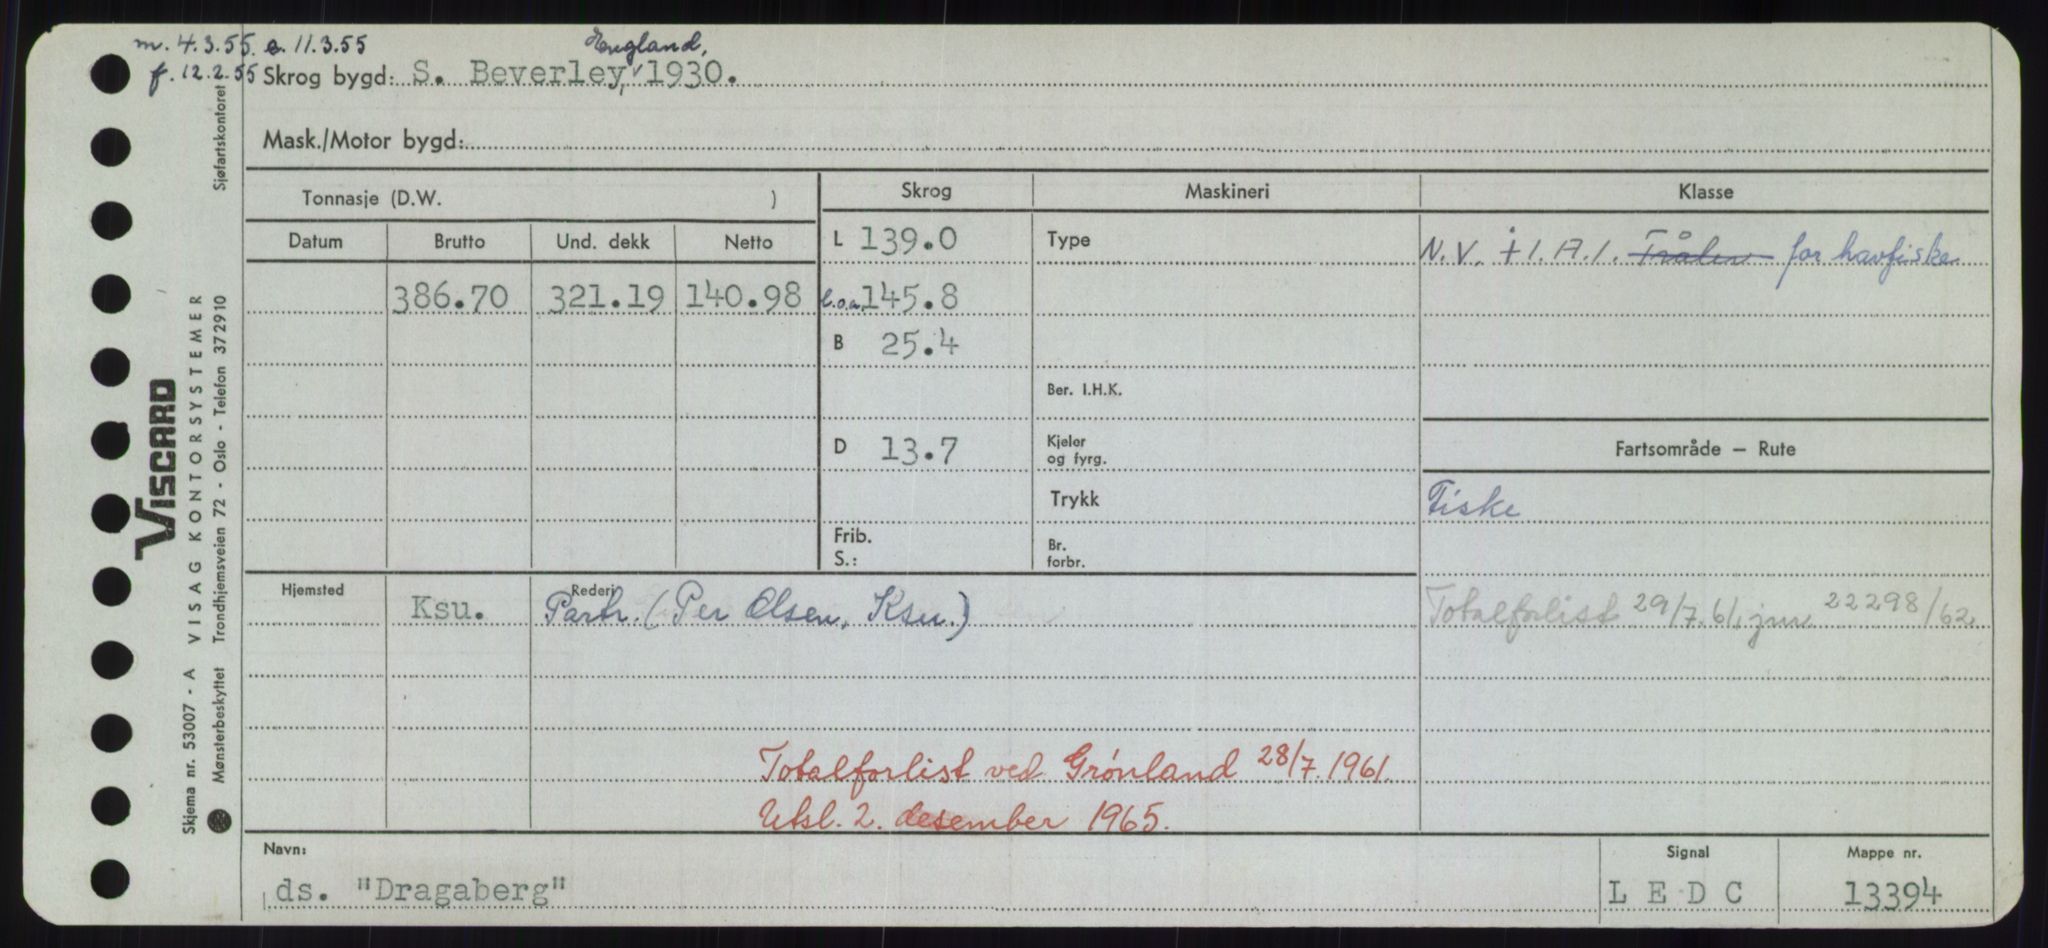 m. 4.3.55. e. 11.3.55
f. 12.2.55
England,
Skrog bygd: S. Beverley, 1930.
Mask./Motor bygd:
Tonnasje (D.W. )
Skrog Maskineri Klasse
Datum Brutto Und. dekk Netto
L 139.0 Type N.V. ☩ 1.A.1. Tråler for havfiske
386.70 321.19 140.98 l.o.a. 145.8
B 25.4
Ber. I.H.K.
D 13.7 Kjeler
og fyrg.
Fartsområde – Rute
Trykk Fiske
Frib.
S.:
Br.
forbr.
Hjemsted Rederi
Ksu. Partr. (Per Olsen, Ksu.) Totalforlist 29/7.61, jnr. 22298/62.
Totalforlist ved Grønland 28/7.1961.
Utsl. 2. desember 1965.
Navn: Signal Mappe nr.
ds. "Dragaberg" L E D C 13394
VISCARD
Skjema nr. 53007 - A VISAG KONTORSYSTEMER
Mønsterbeskyttet Trondhjemsveien 72 - Oslo - Telefon 372910 Sjøfartskontoret